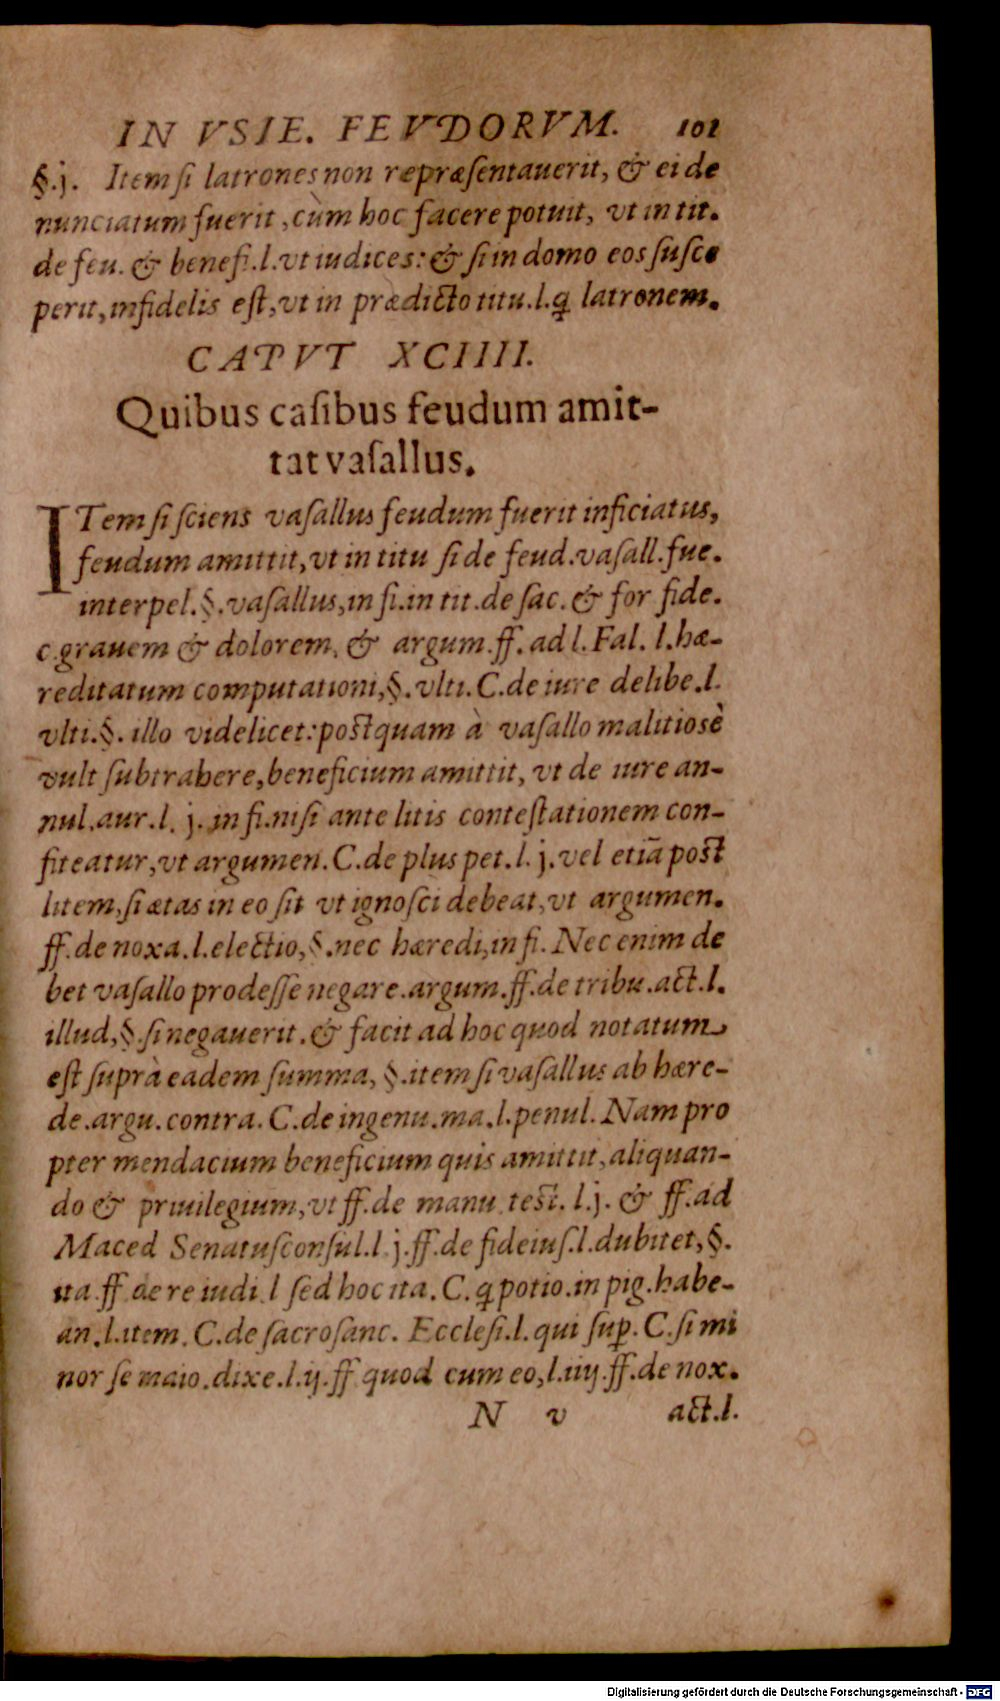 IN VSIE. FEVDORVM. 101
§.j. Item ſi latrones non repræſentauerit, & ei de
nunciatum fuerit, cùm hoc facere potuit, vt in tit.
de feu. & benefi.l.vt iudices: & ſi in domo eos ſuſce
perit, infidelis eſt, vt in prædicto titu.l.ꝗ latronem.
CAPVT XCIIII.
Quibus caſibus feudum amit-
tat vaſallus.
ITem ſi ſciens vaſallus feudum fuerit inficiatus,
feudum amittit, vt in titu ſi de feud.vaſall.fue.
interpel.§.vaſallus, in fi.in tit.de ſac. & for fide.
c.grauem & dolorem, & argum.ff. ad l.Fal. l.hæ-
reditatum computationi,§.vlti.C.de iure delibe.l.
vlti.§. illo videlicet: poſtquam à vaſallo malitiosè
vult ſubtrahere, beneficium amittit, vt de iure an-
nul.aur.l. j. in fi.niſi ante litis conteſtationem con-
fiteatur, vt argumen.C.de plus pet.l. j.vel etiā poſt
litem, ſi ætas in eo ſit vt ignoſci debeat, vt argumen.
ff.de noxa.l.electio,§.nec hæredi, in fi. Nec enim de
bet vaſallo prodeſſe negare.argum.ff.de tribu.act.l.
illud,§.ſi negauerit. & facit ad hoc quod notatum
eſt ſuprà eadem ſumma, §.item ſi vaſallus ab hære-
de.argu.contra. C.de ingenu.ma.l.penul. Nam pro
pter mendacium beneficium quis amittit, aliquan-
do & priuilegium, vt ff.de manu teſt. l.j. & ff.ad
Maced Senatuſconſul.l j.ff.de fideiuſ.l.dubitet,§.
ita.ff de re iudi l ſed hoc ita. C.ꝗ potio.in pig.habe-
an.l.item. C.de ſacroſanc. Eccleſi.l. qui ſuꝑ. C.ſi mi
nor ſe maio.dixe.l.ij.ff quod cum eo,l.iiij.ff.de nox.
N v act.l.
Digitalisierung gefördert durch die Deutsche Forschungsgemeinschaft - DFG